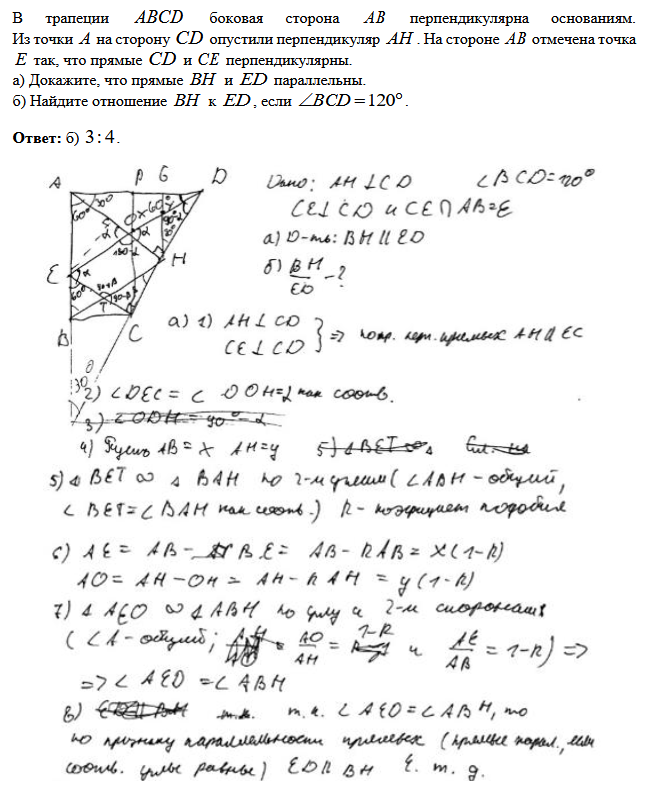 В трапеции ABCD боковая сторона AB перпендикулярна основаниям.
Из точки A на сторону CD опустили перпендикуляр AH. На стороне AB отмечена точка
E так, что прямые CD и CE перпендикулярны.
а) Докажите, что прямые BH и ED параллельны.
б) Найдите отношение BH к ED, если ∠BCD = 120°.
Ответ: б) 3:4.
A P G D
60° 30°
H
E
60°
T
B C
30
Дано: AH ⊥ CD ∠BCD = 120°
CE ⊥ CD и CE ∩ AB = E
а) D-ть: BH || ED
б) BH/ED - ?
а) 1) AH ⊥ CD
CE ⊥ CD } => AH || EC
2) ∠DEC = ∠DOH = α как соотв.
3) ∠ODH = 90° - α
4) Пусть AB = x AH = y
5) Δ BET ∞ Δ BAH по 2-м углам (∠ABH - общий,
∠BET = ∠BAH как соотв.) k - коэффициент подобия
6) AE = AB - BE = AB - kAB = x(1-k)
AO = AH - OH = AH - kAH = y(1-k)
7) Δ AEO ∞ Δ ABH по углу и 2-м сторонам
(∠A - общий; AO/AH = 1-k и AE/AB = 1-k) =>
=> ∠AEO = ∠ABH
8) т.к. ∠AEO = ∠ABH, то
по признаку параллельности прямых (прямые парал., если
соотв. углы равны) ED || BH ч.т.д.